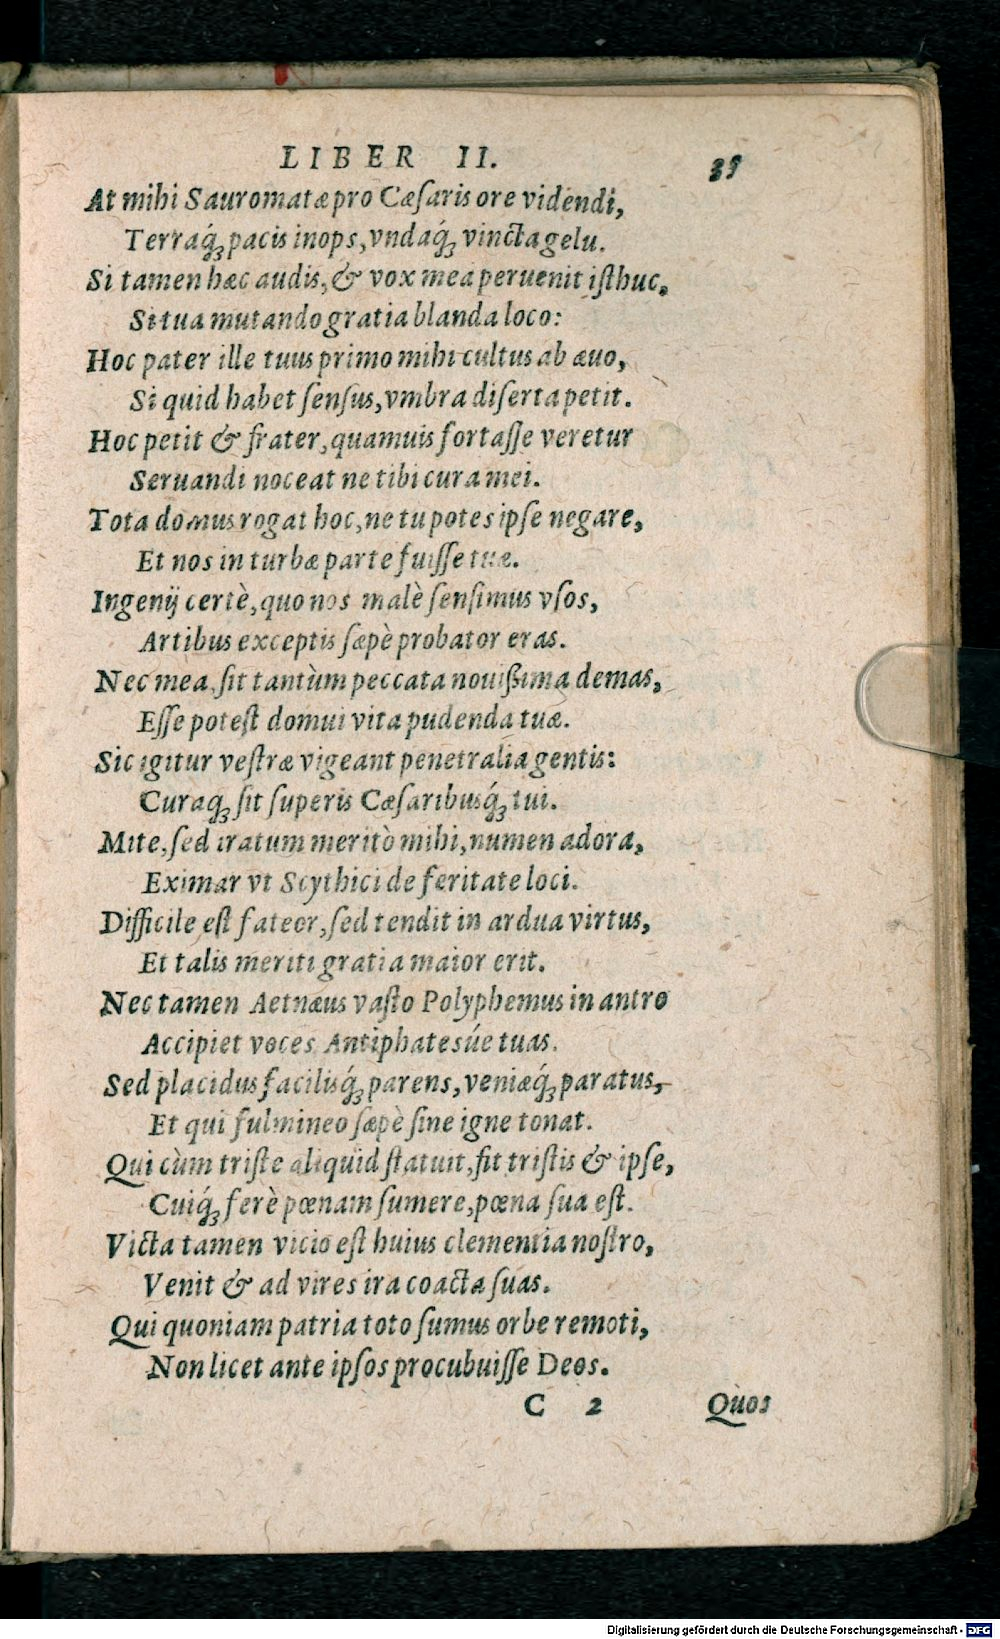 LIBER II. 35
At mihi Sauromatæ pro Cæſaris ore videndi,
Terraq́ꝫ pacis inops, vndaq́ꝫ vincta gelu.
Si tamen hæc audis, & vox mea peruenit iſthuc,
Si tua mutando gratia blanda loco:
Hoc pater ille tuus primo mihi cultus ab æuo,
Si quid habet ſenſus, vmbra diſerta petit.
Hoc petit & frater, quamuis fortaſſe veretur
Seruandi noceat ne tibi cura mei.
Tota domus rogat hoc, ne tu potes ipſe negare,
Et nos in turbæ parte fuiſſe tuæ.
Ingenij certè, quo nos malè ſenſimus vſos,
Artibus exceptis ſæpè probator eras.
Nec mea, ſit tantùm peccata nouißima demas,
Eſſe poteſt domui vita pudenda tuæ.
Sic igitur veſtræ vigeant penetralia gentis:
Curaqꝫ ſit ſuperis Cæſaribusq́ꝫ tui.
Mite, ſed iratum meritò mihi, numen adora,
Eximar vt Scythici de feritate loci.
Difficile eſt fateor, ſed tendit in ardua virtus,
Et talis meriti gratia maior erit.
Nec tamen Aetnæus vaſto Polyphemus in antro
Accipiet voces Antiphatesúe tuas.
Sed placidus facilisq́ꝫ parens, veniæq́ꝫ paratus,
Et qui fulmineo ſæpè ſine igne tonat.
Qui cùm triſte aliquid ſtatuit, fit triſtis & ipſe,
Cuiq́ꝫ ferè pœnam ſumere, pœna ſua eſt.
Victa tamen vicio eſt huius clementia noſtro,
Venit & ad vires ira coacta ſuas.
Qui quoniam patria toto ſumus orbe remoti,
Non licet ante ipſos procubuiſſe Deos.
C 2 Quos
Digitalisierung gefördert durch die Deutsche Forschungsgemeinschaft - DFG